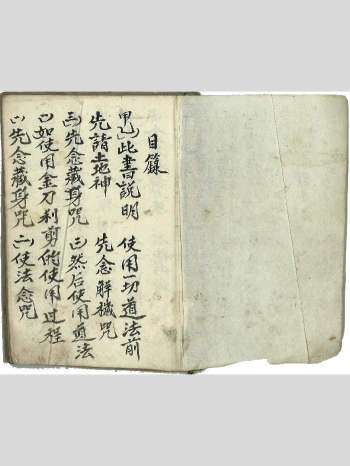 目錄
甲、此書說明 使用一切道法前
先請土地神 先念解穢咒
(三)先念藏身咒 (三)然后使用道法
(二)如使用金刀利剪的使用过程
(一)先念藏身咒 (二)使法念咒